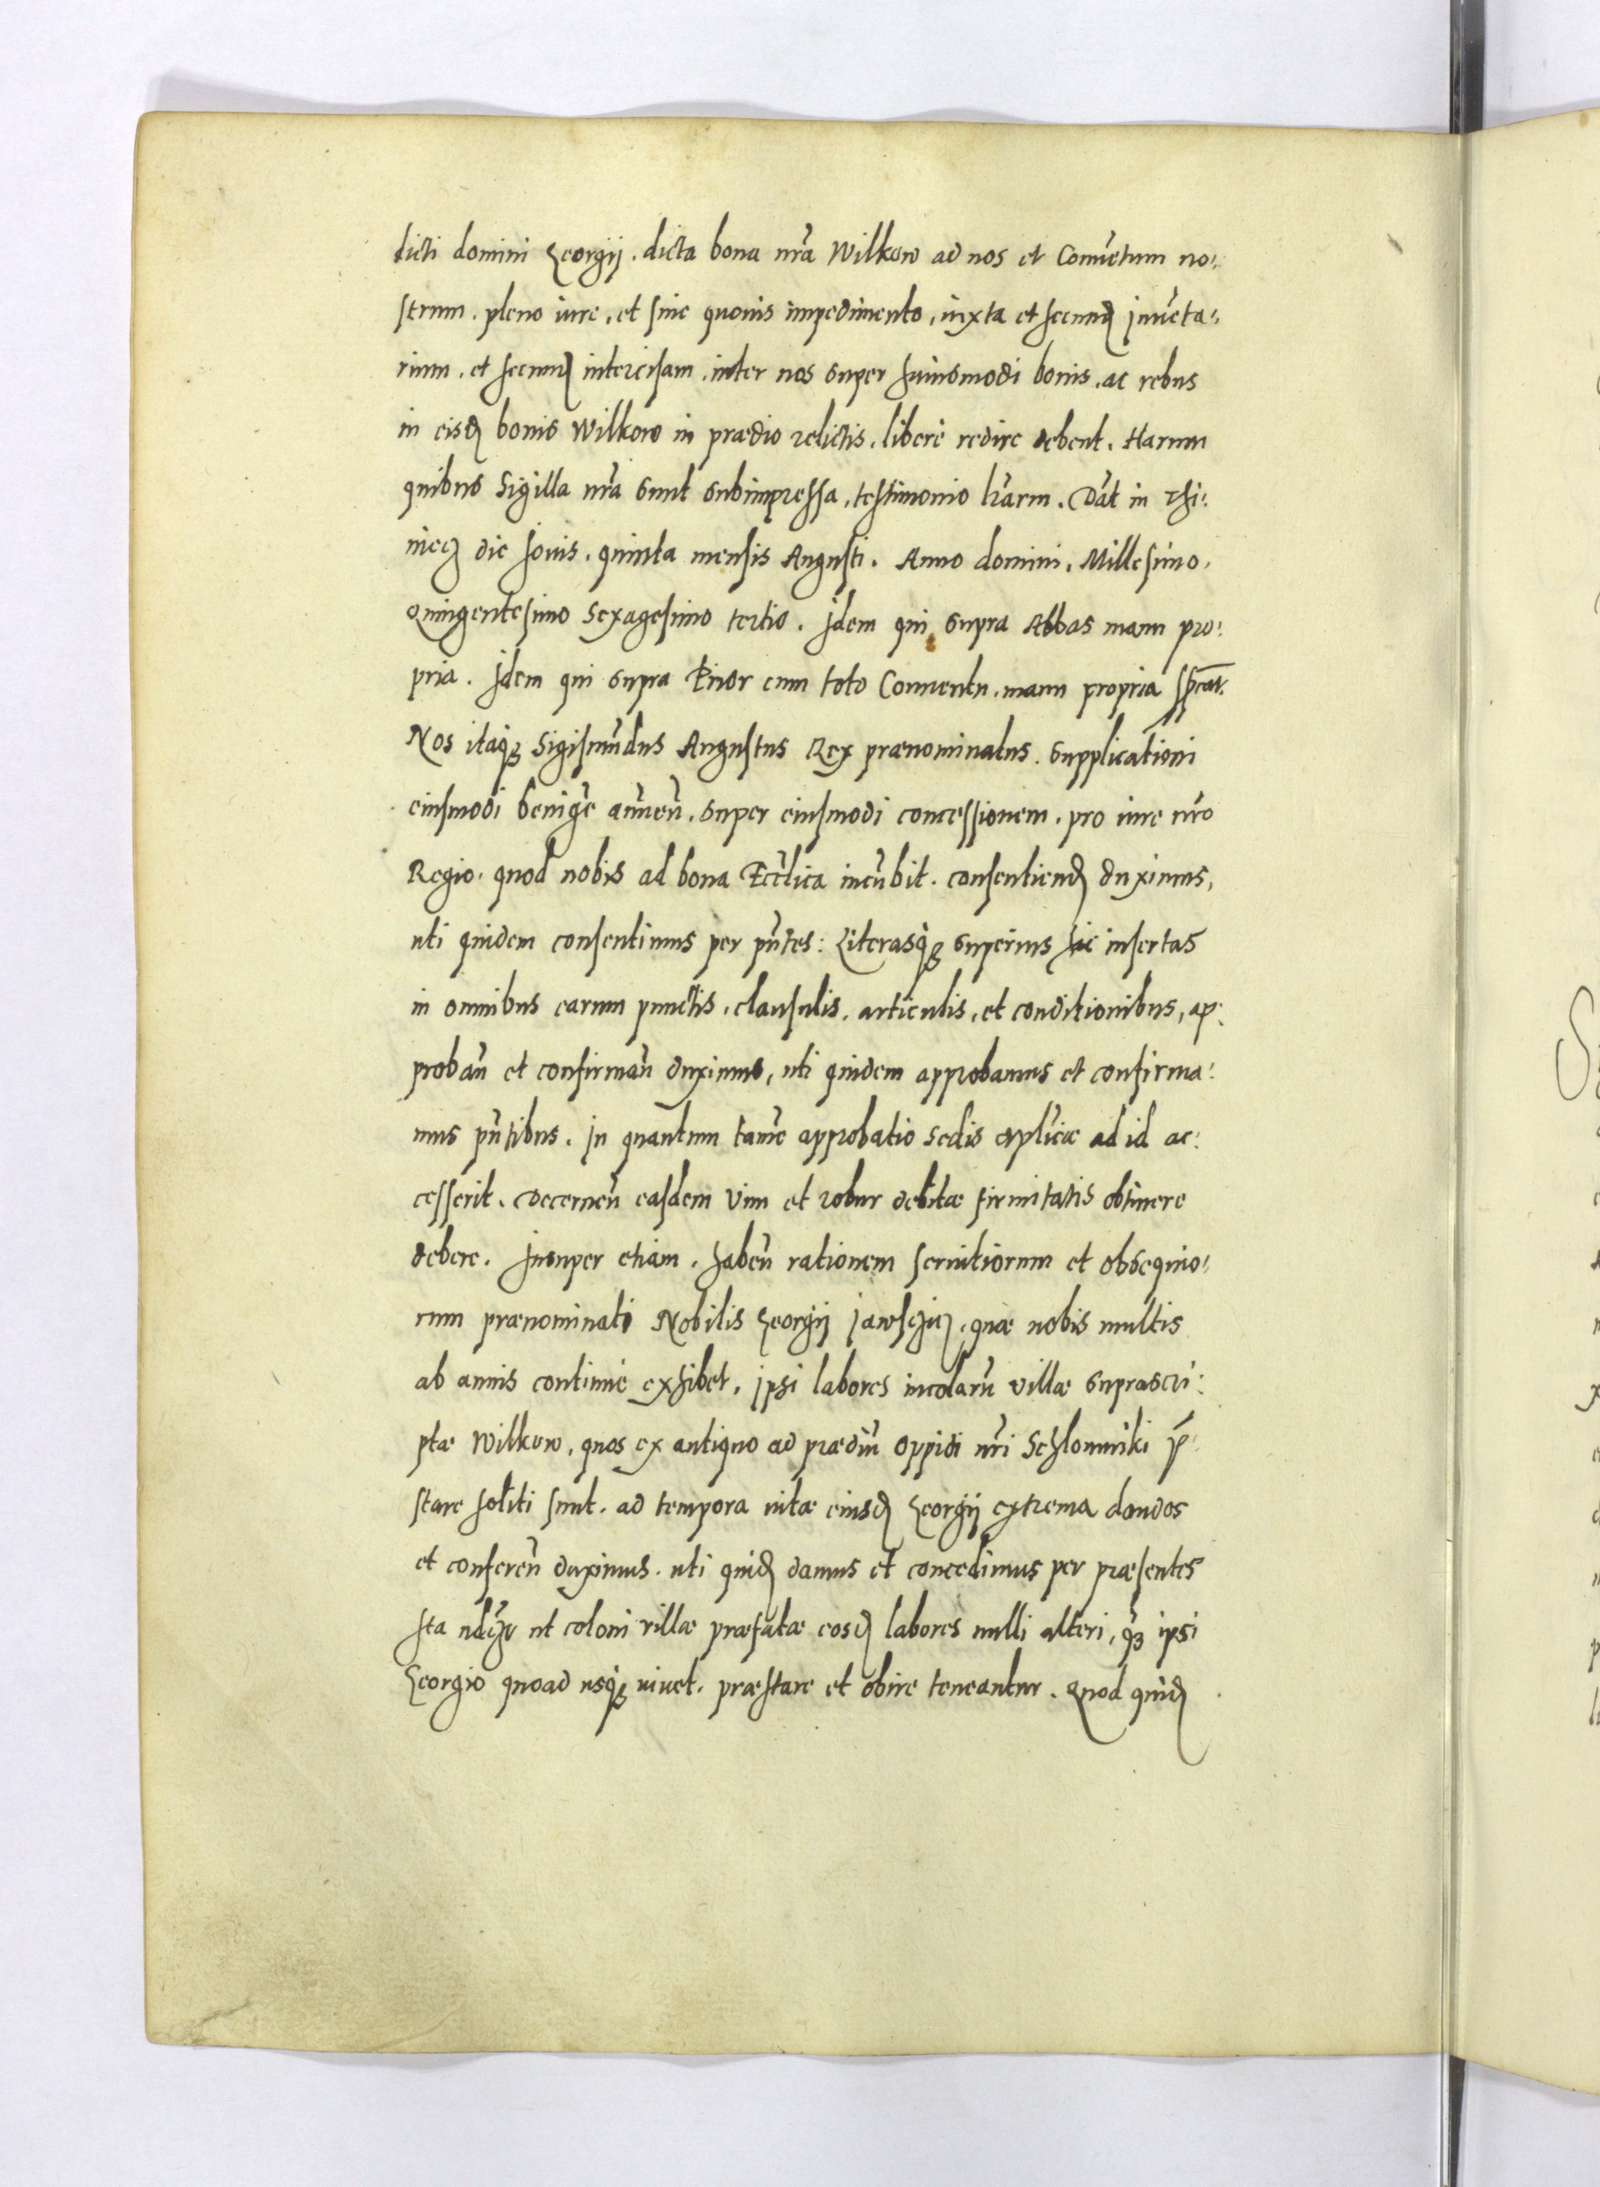 dicti domini Georgij. dicta bona nr̃a Wilkow ad nos et Conuẽtum no:
strum. pleno iure, et sine quouis impedimento, iuxta et secund̨ inuẽta:
rium, et secund̨ intercisam, inter nos super huiusmodi bonis, ac rebus
in eisd̨ bonis Wilkow in prædio relictis, liberè redire debent. Harum
quibus Sigilla nr̃a sunt subimpressa, testimonio lr̃arm. Dat̃ in
die Jouis, quinta mensis Augusti. Anno domini, Millesimo,
Quingentesimo Sexagesimo tertio. Idem qui supra Abbas manu pro:
pria. Idem qui supra Prior cum toto Conuentu, manu propria
Nos itaq̨ Sigismũdus Augustus Rex prænominatus. Supplicationi
eiusmodi benigñe annueñ, super eiusmodi concessionem, pro iure nr̃o
Regio, quod nobis ad bona Eccl̃ica incũbit, consentiend̨ duximus,
uti quidem consentimus per pñtes: Literasq̨ superius hic insertas
in omnibus earum punctis, clausulis, articulis, et conditionibus, ap:
probañ et confirmañ duximus, uti quidem approbamus et confirma:
mus pñtibus. In quantum tamẽ approbatio Sedis apl̃icæ ad id ac:
cesserit. Decerneñ easdem vim et robur debitæ firmitatis obtinere
debere. Insuper etiam, habeñ rationem seruitiorum et obsequio:
rum prænominati Nobilis Georgij quæ nobis multis
ab annis continuè exhibet, ipsi labores incolarũ villæ suprascri:
ptæ Wilkow, quos ex antiquo ad prædiũ oppidi nr̃i Schlomniki p̃:
stare soliti sunt, ad tempora vitæ eiusd̨ Georgij extrema dandos
et confereñ duximus, uti quid̨ damus et concedimus per præsentes
Ita ut coloni villæ præfatæ eosd̨ labores nulli alteri, q̨ ipsi
Georgio quoad usq̨ viuet, præstare et obire teneantur. Quod quid̨